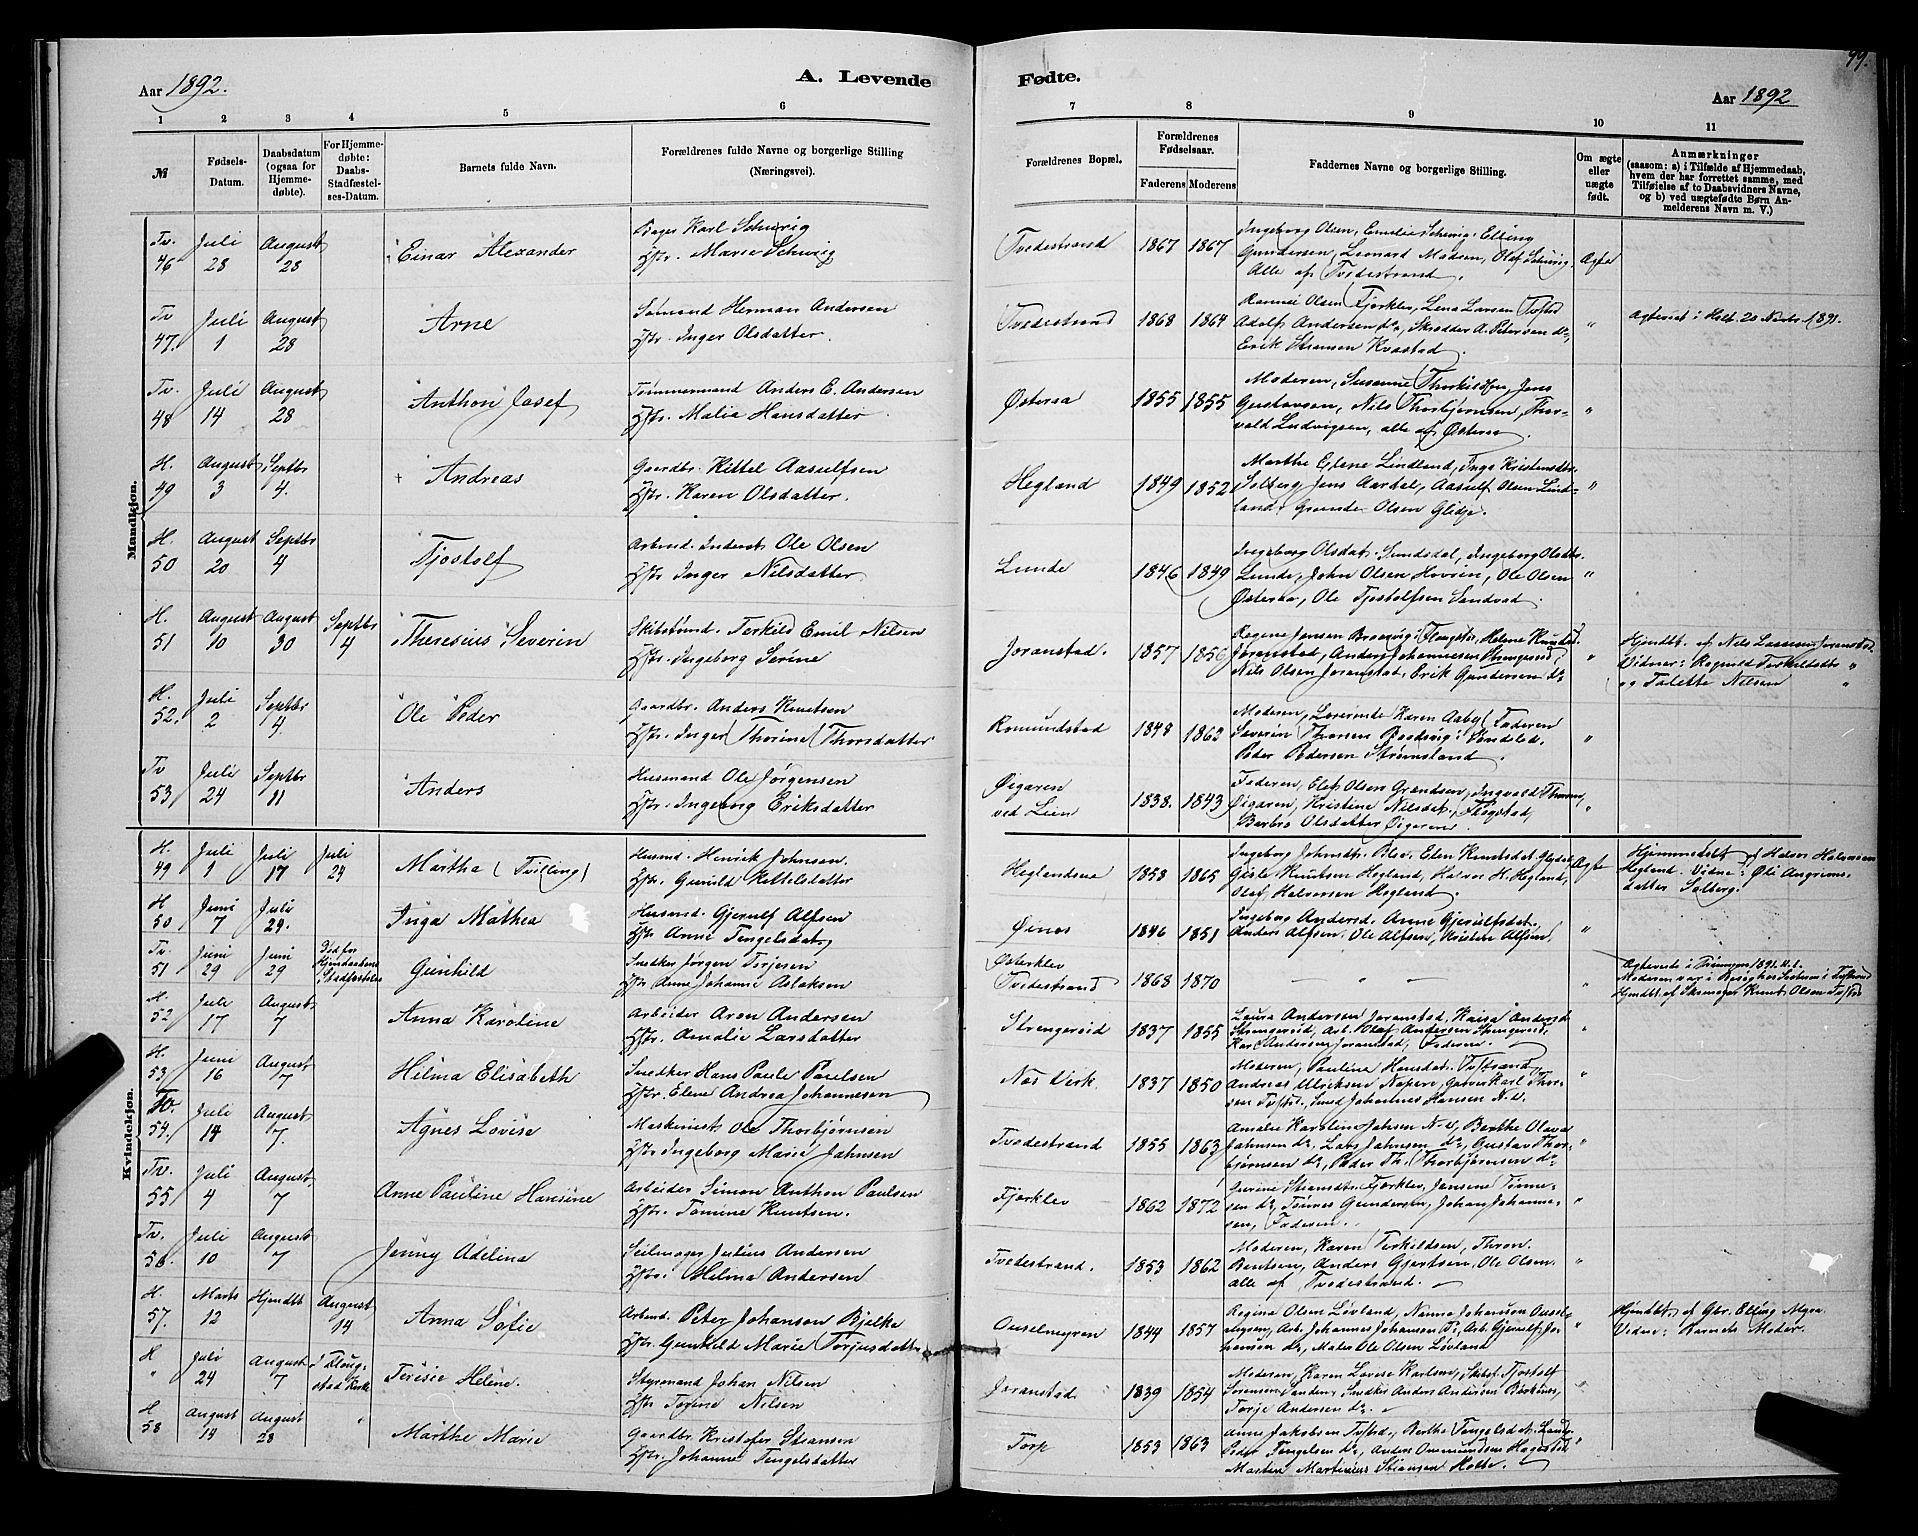 99.
Aar 1892.
A. Levende Fødte.
Aar 1892
1 2 3 4 5 6 7 8 9 10 11
№
Fødsels-Datum.
Daabsdatum (ogsaa for Hjemmedøbte).
For Hjemmedøbte: Daabs-Stadfæstelses-Datum.
Barnets fulde Navn.
Forældrenes fulde Navne og borgerlige Stilling (Næringsvei).
Forældrenes Bopæl.
Forældrenes Fødselsaar.
Faderens Moderens
Faddernes Navne og borgerlige Stilling.
Om ægte eller uægte født.
Anmærkninger
(saasom: a) i Tilfælde af Hjemmedaab, hvem der har forrettet samme, med Tilføielse af to Daabsvidners Navne, og b) ved uægtefødte Børn Anmelderens Navn m. V.)
Mandkjøn.
Tv. 46 Juli 28 August 28 Einar Alexander
Bager Karl Schwig
Hstr. Marie Schwig
Tvedestrand 1867 1867
Ingeborg Olsen, Emelie Schwig, Elling
Gundersen, Leonard Madsen, Olaf Schwig,
Alle af Tvedestrand. Ægte
Tv 47. Juli 1 August 28 Arne
Sømand Herman Andersen
Hstr. Inger Olsdatter.
Tvedestrand 1868 1864
Olsen Fjerklev, Lena Larsen
Adolf Andersen do, Skrædder A. Petersen do,
Erik Stiansen Kvastad. "
Ægteviet i Holt 20 Novbr. 1891.
Tv. 48 Juli 14 August 28 Anthon Josef
Tømmermand Anders E. Andersen
Hstr. Malia Hansdatter.
Østeraa 1855 1855
Moderen, Susanne Thorkildsen, Jens
Gustavsen, Nils Thorbjørnsen, Thor-
vald Ludvigsen, alle af Østeraa. "
H. 49 August 3 Septbr 4. Andreas
Gaardbr. Kittel Aasulfsen
Hstr. Karen Olsdatter.
Hegland 1849 1852
Marthe Elene Lindland, Inga Kristensdtr.
Solberg, Jens Aardal, Aasulf Olsen Lind-
land, Gunder Olsen Glidje. "
H. 50 August 20 Septbr 4 Tjostolf
Arbmd. Inderst Ole Olsen
Hstr. Inger Nilsdatter.
Lunde 1846 1849
Ingeborg Olsdat. Sundsdal, Ingeborg Olsdtr.
Lunde, John Olsen Hovsin, Ole Olsen
Østeraa, Ole Tjostolfsen Sandvad. "
H. 51 August 10 August 30 Septbr 4 Theresius Severin
Skibstømd. Terkild Emil Nilsen
Hstr. Ingeborg Serine
Joranstad. 1857 1856
Regine Jensen Flangstr, Helene Knudsd.
Joranstad, Anders Johannesen Strengereid,
Nils Olsen Joranstad, Erik Gundersen do "
Hjmdbt. af Nils Lassesen Joranstad
Vidner: Ragnild Terkelsdtr "
og Talette Nilsen "
H. 52. Juli 2 Septbr 4. Ole Peder
Gaardbr. Anders Knutsen
Hstr. Inger Thorine Thorsdatter
Romundstad 1848 1863
Moderen, Lærerinde Karen Aaby, Faderen
Severin Thorsen Vindsled,
Peder Pedersen Strømsland. "
Tv 53 Juli 24 Septbr 11 Anders
Husmand Ole Jørgensen
Hstr. Ingeborg Eriksdatter
Øigaren ved Lien 1838. 1843
Faderen, Elef Olsen Grændsen, Ingvald Thorsen,
Øigaren, Kristine Nilsdat. Flangstad,
Barbro Olsdatter Øigaren. "
Kvindekjøn.
H. 49 Juli 1 Juli 17 Juli 24 Martha (Tvilling)
Husmd. Henrik Johnsen.
Hstr. Gunild Kittelsdatter
Heglandsaa 1858 1865
Ingeborg Johnsdtr. Blev, Elen Knutsdat. Hegland,
Gisle Knutsen Hegland, Halvor H. Hegland,
Olaf Halvorsen Hegland. Ægte
Hjemmedøbt af Halvor Halvorsen
Hegland. Vidne: Øli Angrims-
datter Solberg.
H 50 Juni 7 Juli 24. Inga Mathea
Husmd. Gjerulf Alfsen
Hstr Anne Tengelsdat.
Øinæs 1846 1851
Ingeborg Andersd., Anne Gjerulfsdat.,
Anders Alfsen, Ole Alfsen, Kristen Alfsen. "
Tv. 51 Juni 29 Juni 29 Gunhild
Snedker Jørgen Terjesen
Hstr Anne Johanne Aslaksen
Østerklev Tvedestrand 1868 1870 - " - "
Ægteviede i Tromøen 1891.
Moderen var i Besøg hos Søsteren i Tvstrand
Hjmdbt. af Skomager Knut Olsen Tvstrd
H. 52 Juli 17 August 7 Anna Karoline
Arbeider Aren Andersen
Hstr. Amalie Larsdatter
Strengereid 1837 1855
Laura Andersen Joranstad, Kaisa Andersd.
Strengereid, Arb. Olaf Andersen Strengereid,
Karl Andersen Joranstad, Faderen. "
H. 53 Juni 16 August 7 Hilma Elisabeth
Snedker Hans Paule Paulsen
Hstr. Elene Andrea Johannesen
Næs Verk. 1837 1850
Moderen, Pauline Hansdat. Tvstrand,
Andreas Ulriksen Næsverk, Garver Karl Thor-
sen Tvstr., Smed Johannes Hansen N.v. "
Tv. 54. Juli 14 August 7. Agnes Lovise
Maskinist Ole Thorbjørnsen
Hstr Ingeborg Marie Jahnsen
Tvedestrand 1855 1863
Amalie Karoline Jahnsen N.v, Berthe Olava
Jahnsen do, Lars Jahnsen do, Gustav Thor-
bjørnsen do, Peder Th. Thorbjørnsen do "
Tv. 55 Juli 4 August 7 Anne Pauline Hansine
Arbeider Simon Anthon Paulsen
Hstr. Tomine Knutsen.
Fjerklev 1862 1872
Gurine Fjerklev, Jensine Tønne-
sen do, Tønnes Gundersen, Johan Johanne-
sen, Faderen. "
Tv. 56. Juli 10 August 7 Jenny Adelina
Seilmager Julius Andersen
Hstr. Helma Andersen
Tvedestrand. 1853 1862
Moderen, Karen Terkildsen, Thron
Bentsen, Anders Gjertsen, Ole Olsen.
alle af Tvedestrand. "
H. 57. Marts 12 Hjmdbt August 14 Anna Sofie
Arbmd. Peter Johansen Bjelke
Hstr. Gunhild Marie Torjusdatter
Ouselmyren 1844 1857
Regine Olsen Løvland, Nanna Johansen Ousel-
myren, Arb. Johannes Johansen do, Arb. Gjerulf Jo-
hansen do, Maler Ole Olsen Løvland "
Hjmdbt. af Gbr. Elling Myra.
Vidne: Barnets Moder.
H " Juli 24 August 7 I Flangstad Kirke Teresie Helene.
Styrmand Johan Nilsen
Hstr Torine Nilsen
Joranstad 1839 1854
Moderen, Karen Lovise Karlsen, Skibsf. Tjostolf
Sørensen Sanden, Snedker Anders Andersen
Torje Andersen do. "
H 58 August 14 August 28 " Marthe Marie
Gaardbr Kristofer Stiansen
Hstr. Johanne Tengelsdatter
Torp 1853 1863
Anne Jakobsen Tvstrd., Berthe Tengelsdat.
Peder Tengelsen do, Anders Hagestad
Martin Martinius Stiansen Holte. "